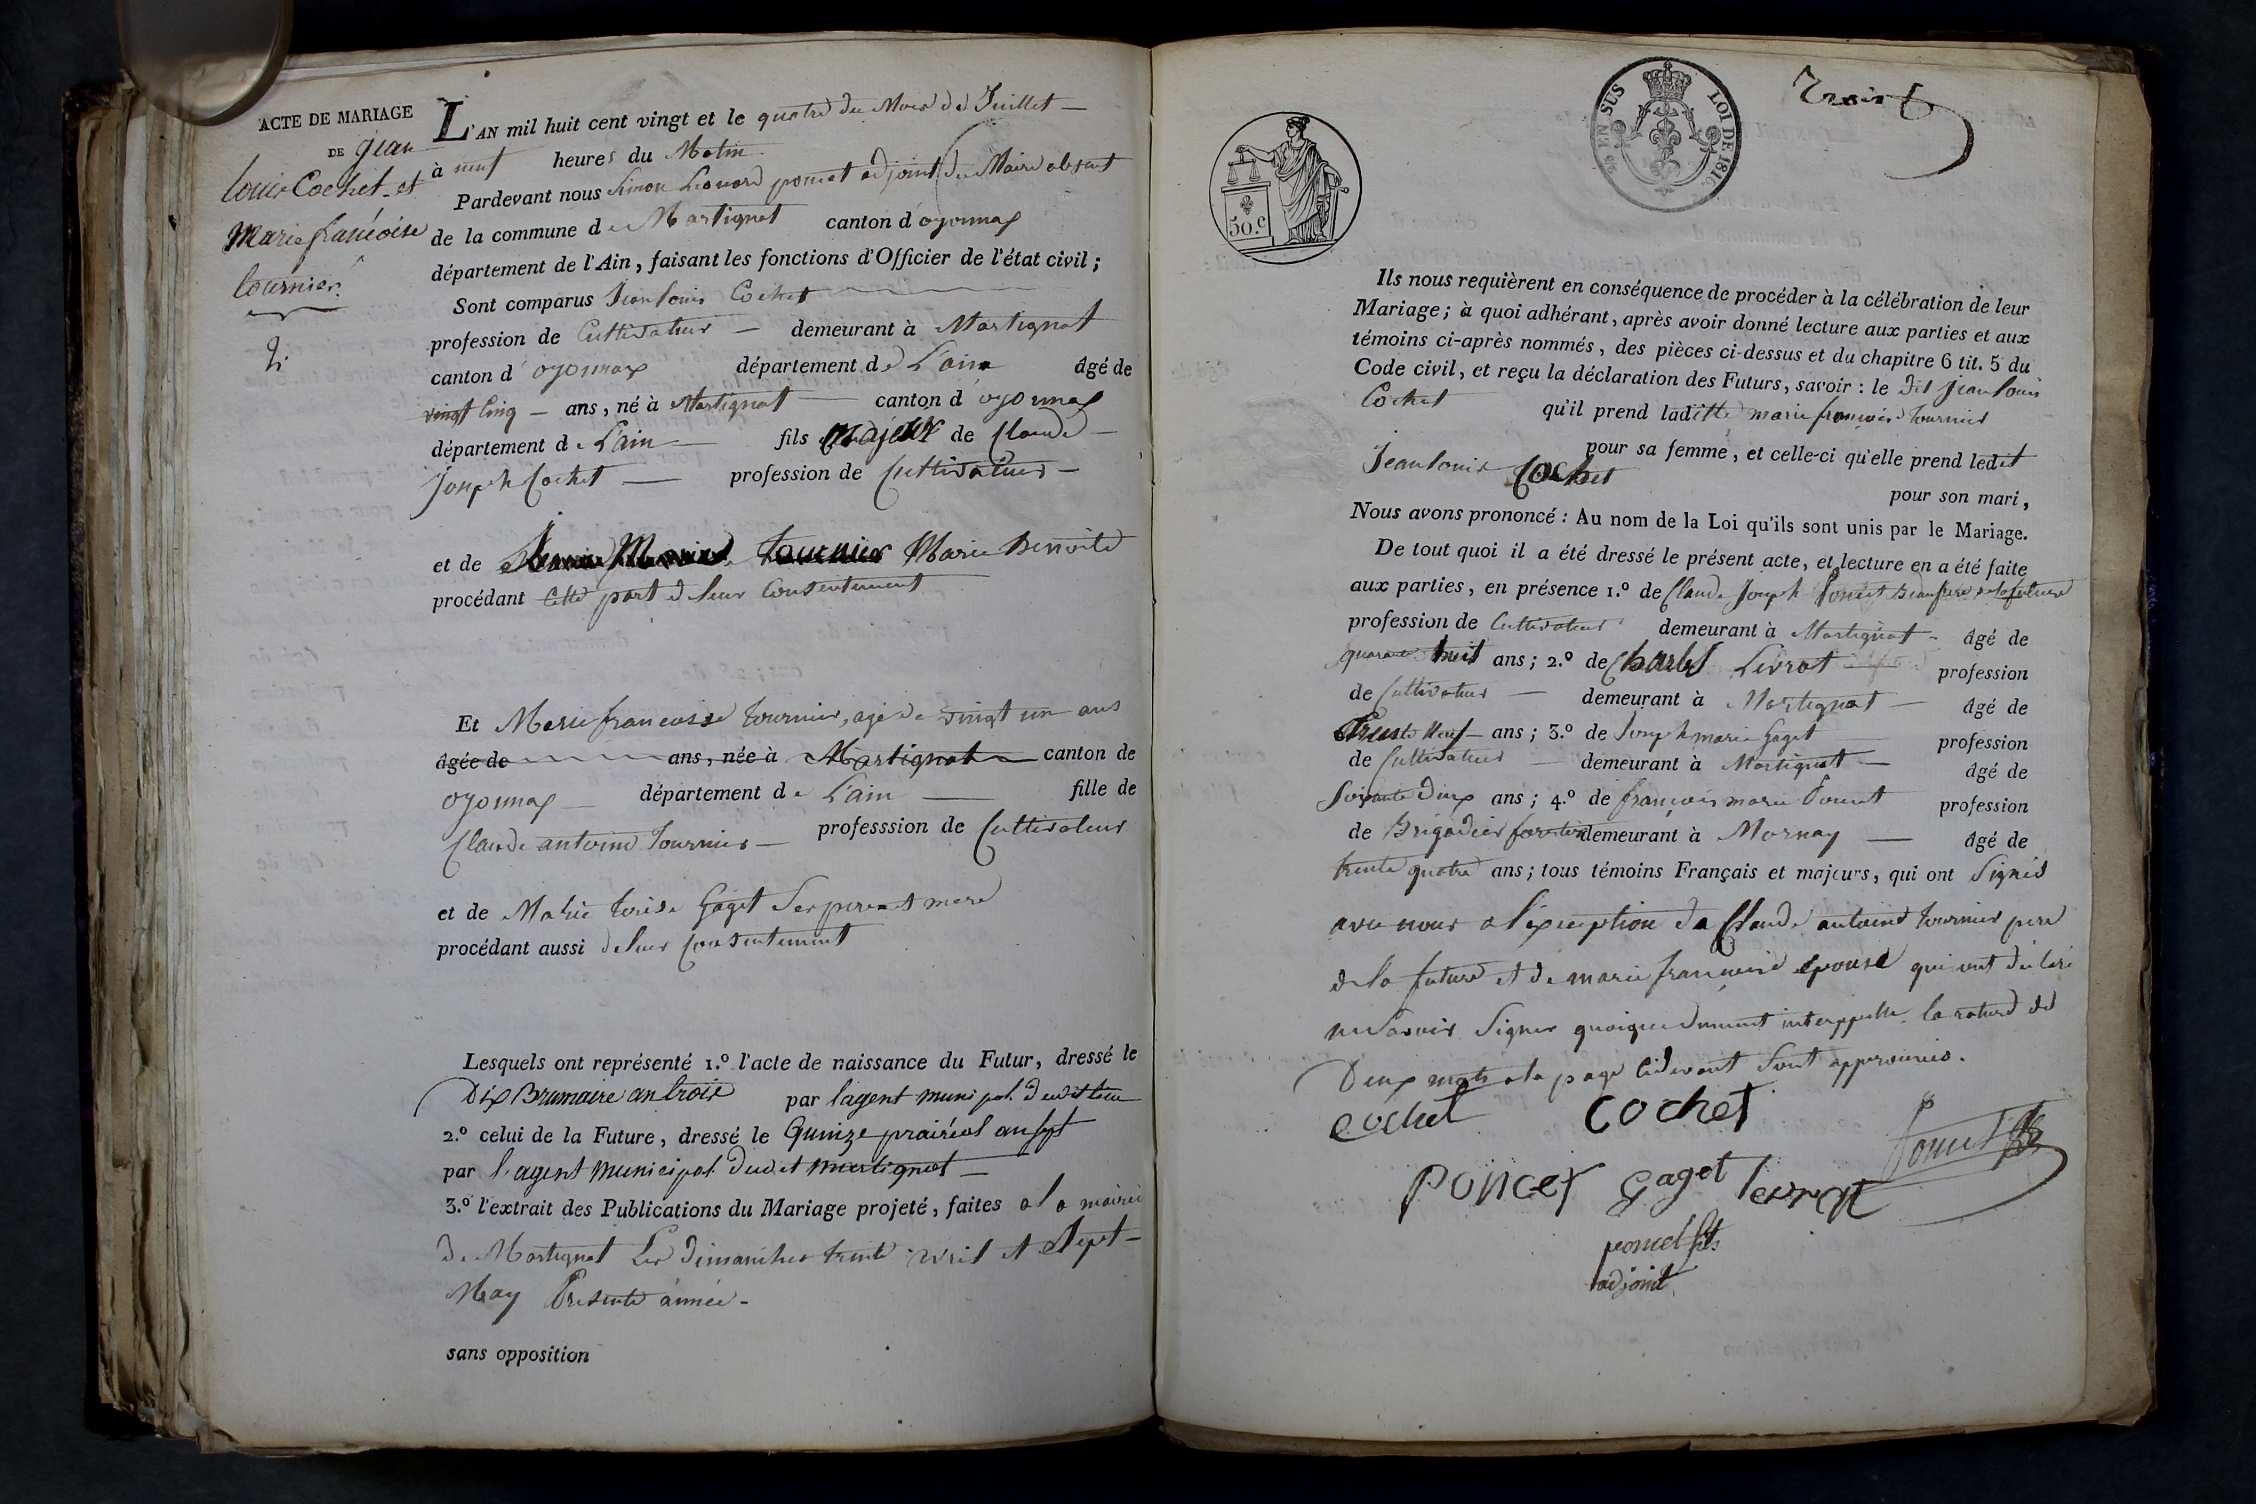 ACTE DE MARIAGE
DE jean
louis Cochet et
Marie françoise
tournier
2.
L'AN mil huit cent vingt et le quatre du Mois de Juillet
à neuf heures du Matin
Pardevant nous Simon Léonard poncet adjoint du Maire absent
de la commune de Martignat canton d'oyonnax
département de l'Ain, faisant les fonctions d'Officier de l'état civil;
Sont comparus Jean louis Cochet
profession de Cultivateur demeurant à Martignat
canton d'oyonnax département de L'ain âgé de
vingt Cinq ans, né à Martignat canton d'oyonnax
département de L'ain fils majeur de Claude
joseph Cochet profession de Cultivateur
et de Tournier Marie Benoite
procédant Cette part de leur Consentement
Et Marie francoise tournier, agé de vingt un ans
âgée de ans, née à Martignat canton de
oyonnax département de L'ain fille de
Claude antoine tournier professsion de Cultivateur
et de Marie terèse Gaget Ses pere et mere
procédant aussi de leur Consentement
Lesquels ont représenté 1.º l'acte de naissance du Futur, dressé le
Dix Brumaire an trois par l'agent municipal dudit lieu
2.º celui de la Future, dressé le Quinze prairéal an sept
par l'agent municipal dudit martignat
3.º l'extrait des Publications du Mariage projeté, faites a la mairie
de Martignat Les dimanches trente avril et Sept
May Presente année
sans opposition
trois
EN SUS LOI DE 1816.
50.c
Ils nous requièrent en conséquence de procéder à la célébration de leur
Mariage; à quoi adhérant, après avoir donné lecture aux parties et aux
témoins ci-après nommés, des pièces ci-dessus et du chapitre 6 tit. 5 du
Code civil, et reçu la déclaration des Futurs, savoir: le dit jean louis
Cochet qu'il prend laditte marie françoise tournier
pour sa femme, et celle-ci qu'elle prend ledit
Jean louis Cochet
pour son mari,
Nous avons prononcé: Au nom de la Loi qu'ils sont unis par le Mariage.
De tout quoi il a été dressé le présent acte, et lecture en a été faite
aux parties, en présence 1.º de Claude Joseph Poncet Beaufrère de la future
profession de Cultivateur demeurant à Martignat âgé de
quarante huit ans; 2.º de Charles Levrat profession
de Cultivateur demeurant à Martignat âgé de
Trente Neuf ans; 3.º de Joseph marie Gaget profession
de Cultivateur demeurant à Martignat âgé de
Soixante Deux ans; 4.º de françois marie Poncet profession
de Brigadier forestier demeurant à Mornay âgé de
trente quatre ans; tous témoins Français et majeurs, qui ont Signés
avec nous a l'éxception de Claude antoine tournier pere
de la future et de marie françoise épouse qui ont déclaré
ne Savoir Signer quoique dument interppellé. la rature de
Deux mots a la page cidevant Sont approuvés.
cochet COCHET Poncet
PONCET Gaget levrat
poncet fils
adjoint